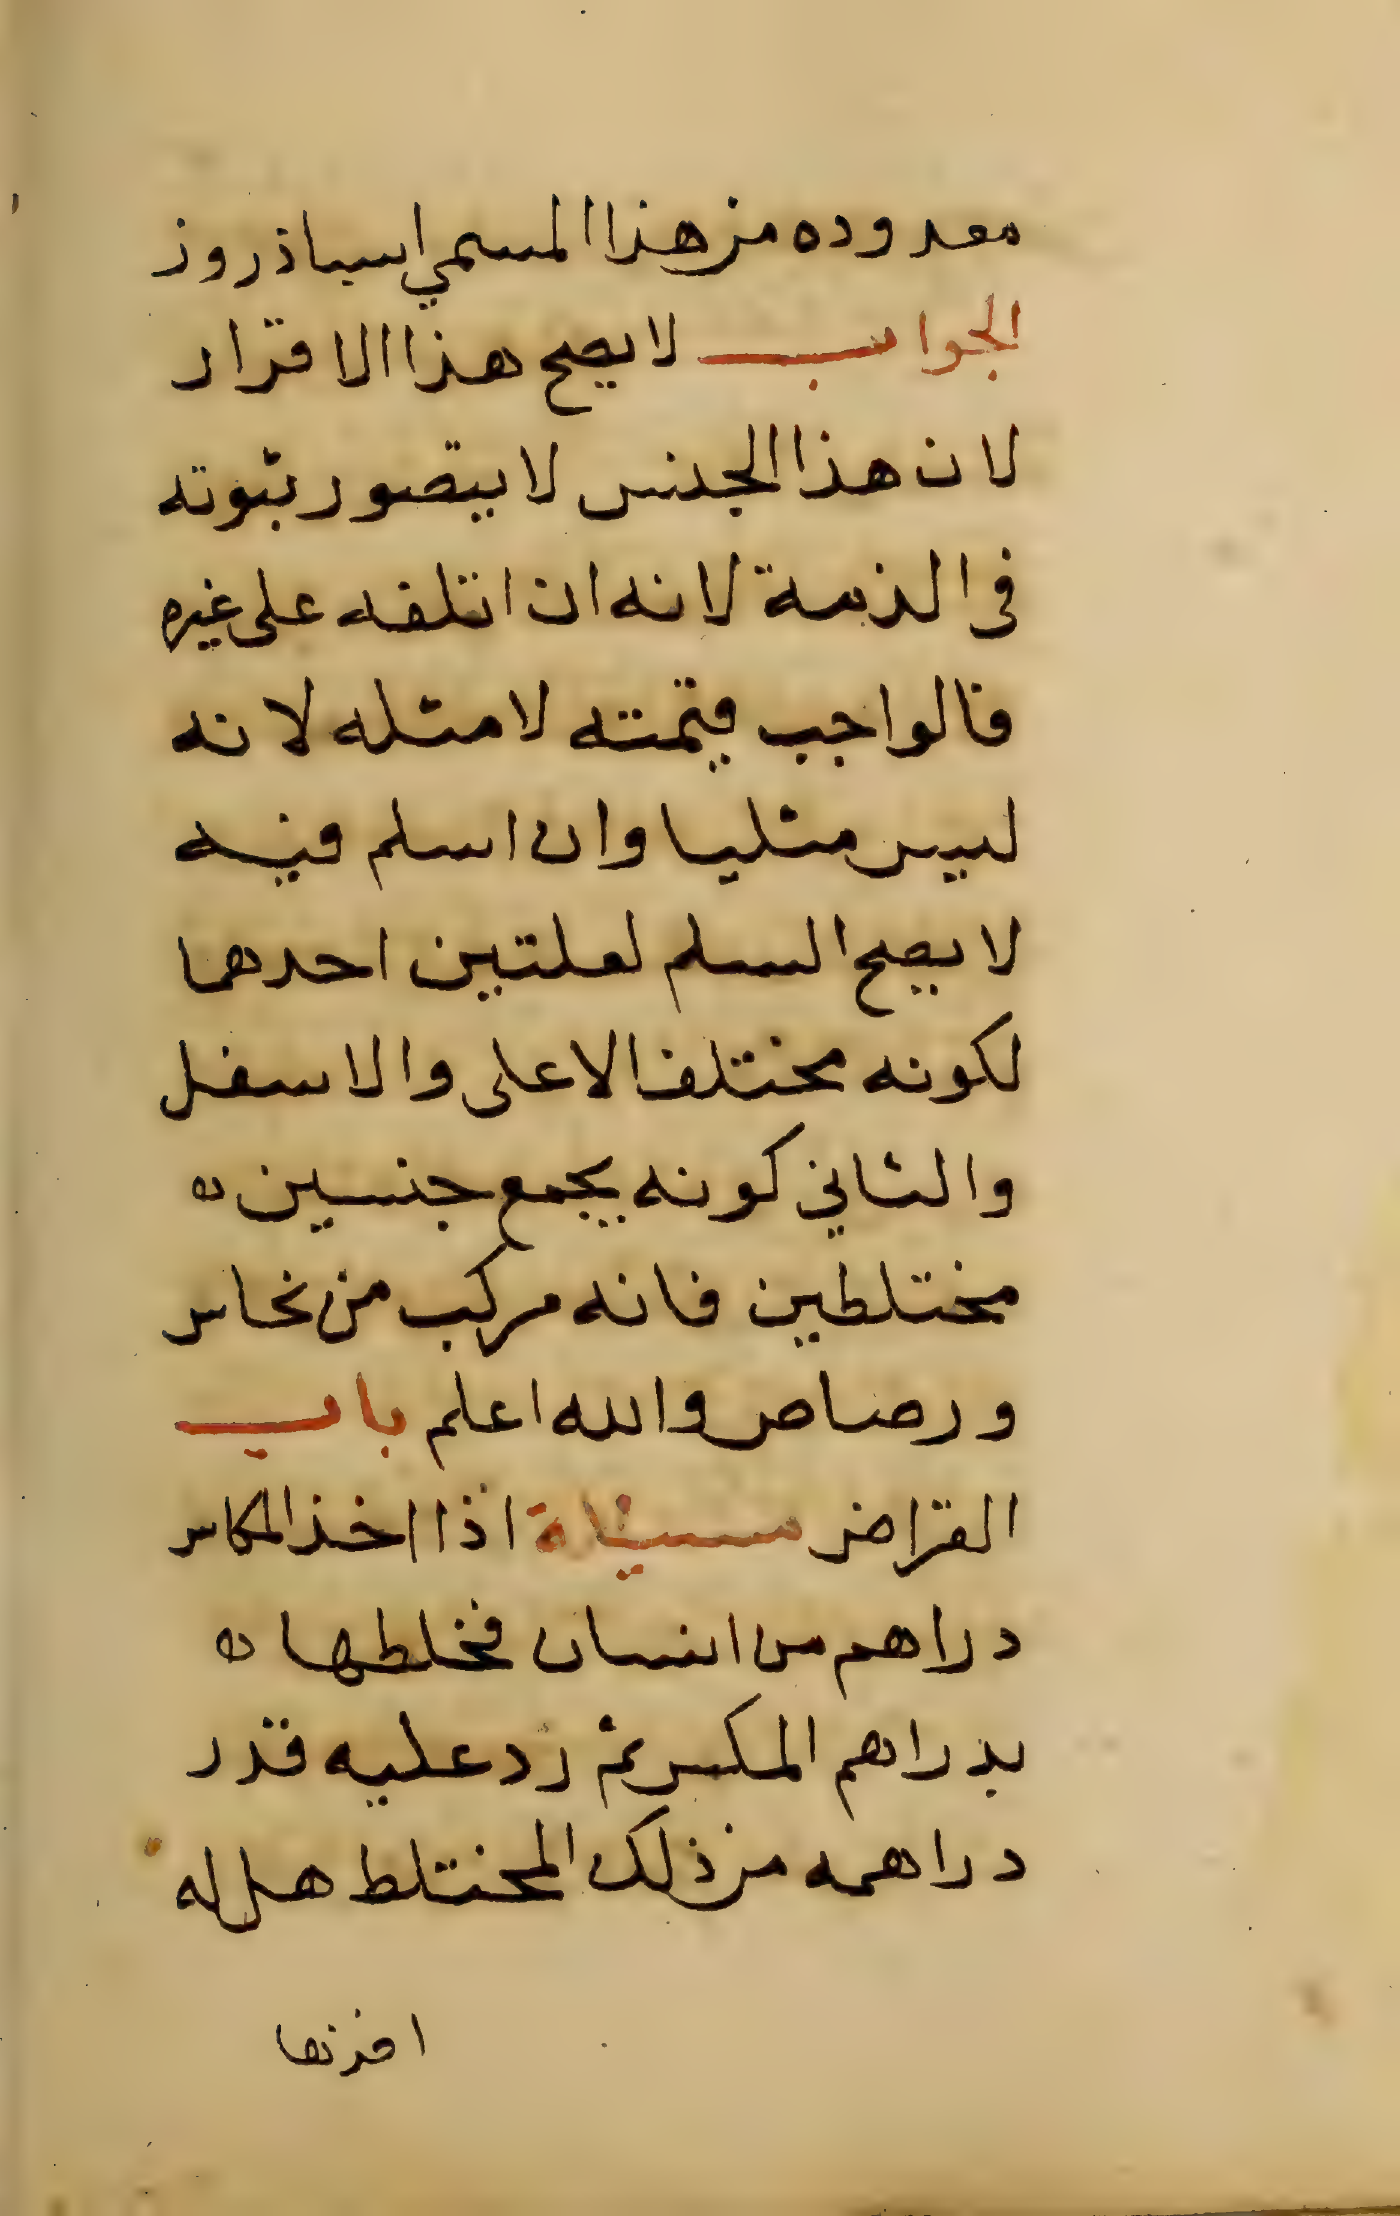 معدوده من هذا المسمي اسباذروز
الجواب لا يصح هذا الاقرار
لان هذا الجنس لا يتصور ثبوته
في الذمة لانه ان اتلفه على غيره
فالواجب قيمته لا مثله لانه
ليس مثليا وان اسلم فيه
لا يصح السلم لعلتين احدهما
لكونه مختلف الاعلى والاسفل
والثاني كونه يجمع جنسين ه
مختلطين فانه مركب من نحاس
ورصاص والله اعلم باب
القراض مسيلة اذا اخذ المكاس
دراهم من انسان فخلطها ه
بدراهم المكس ثم رد عليه قدر
دراهمه من ذلك المختلط هل له